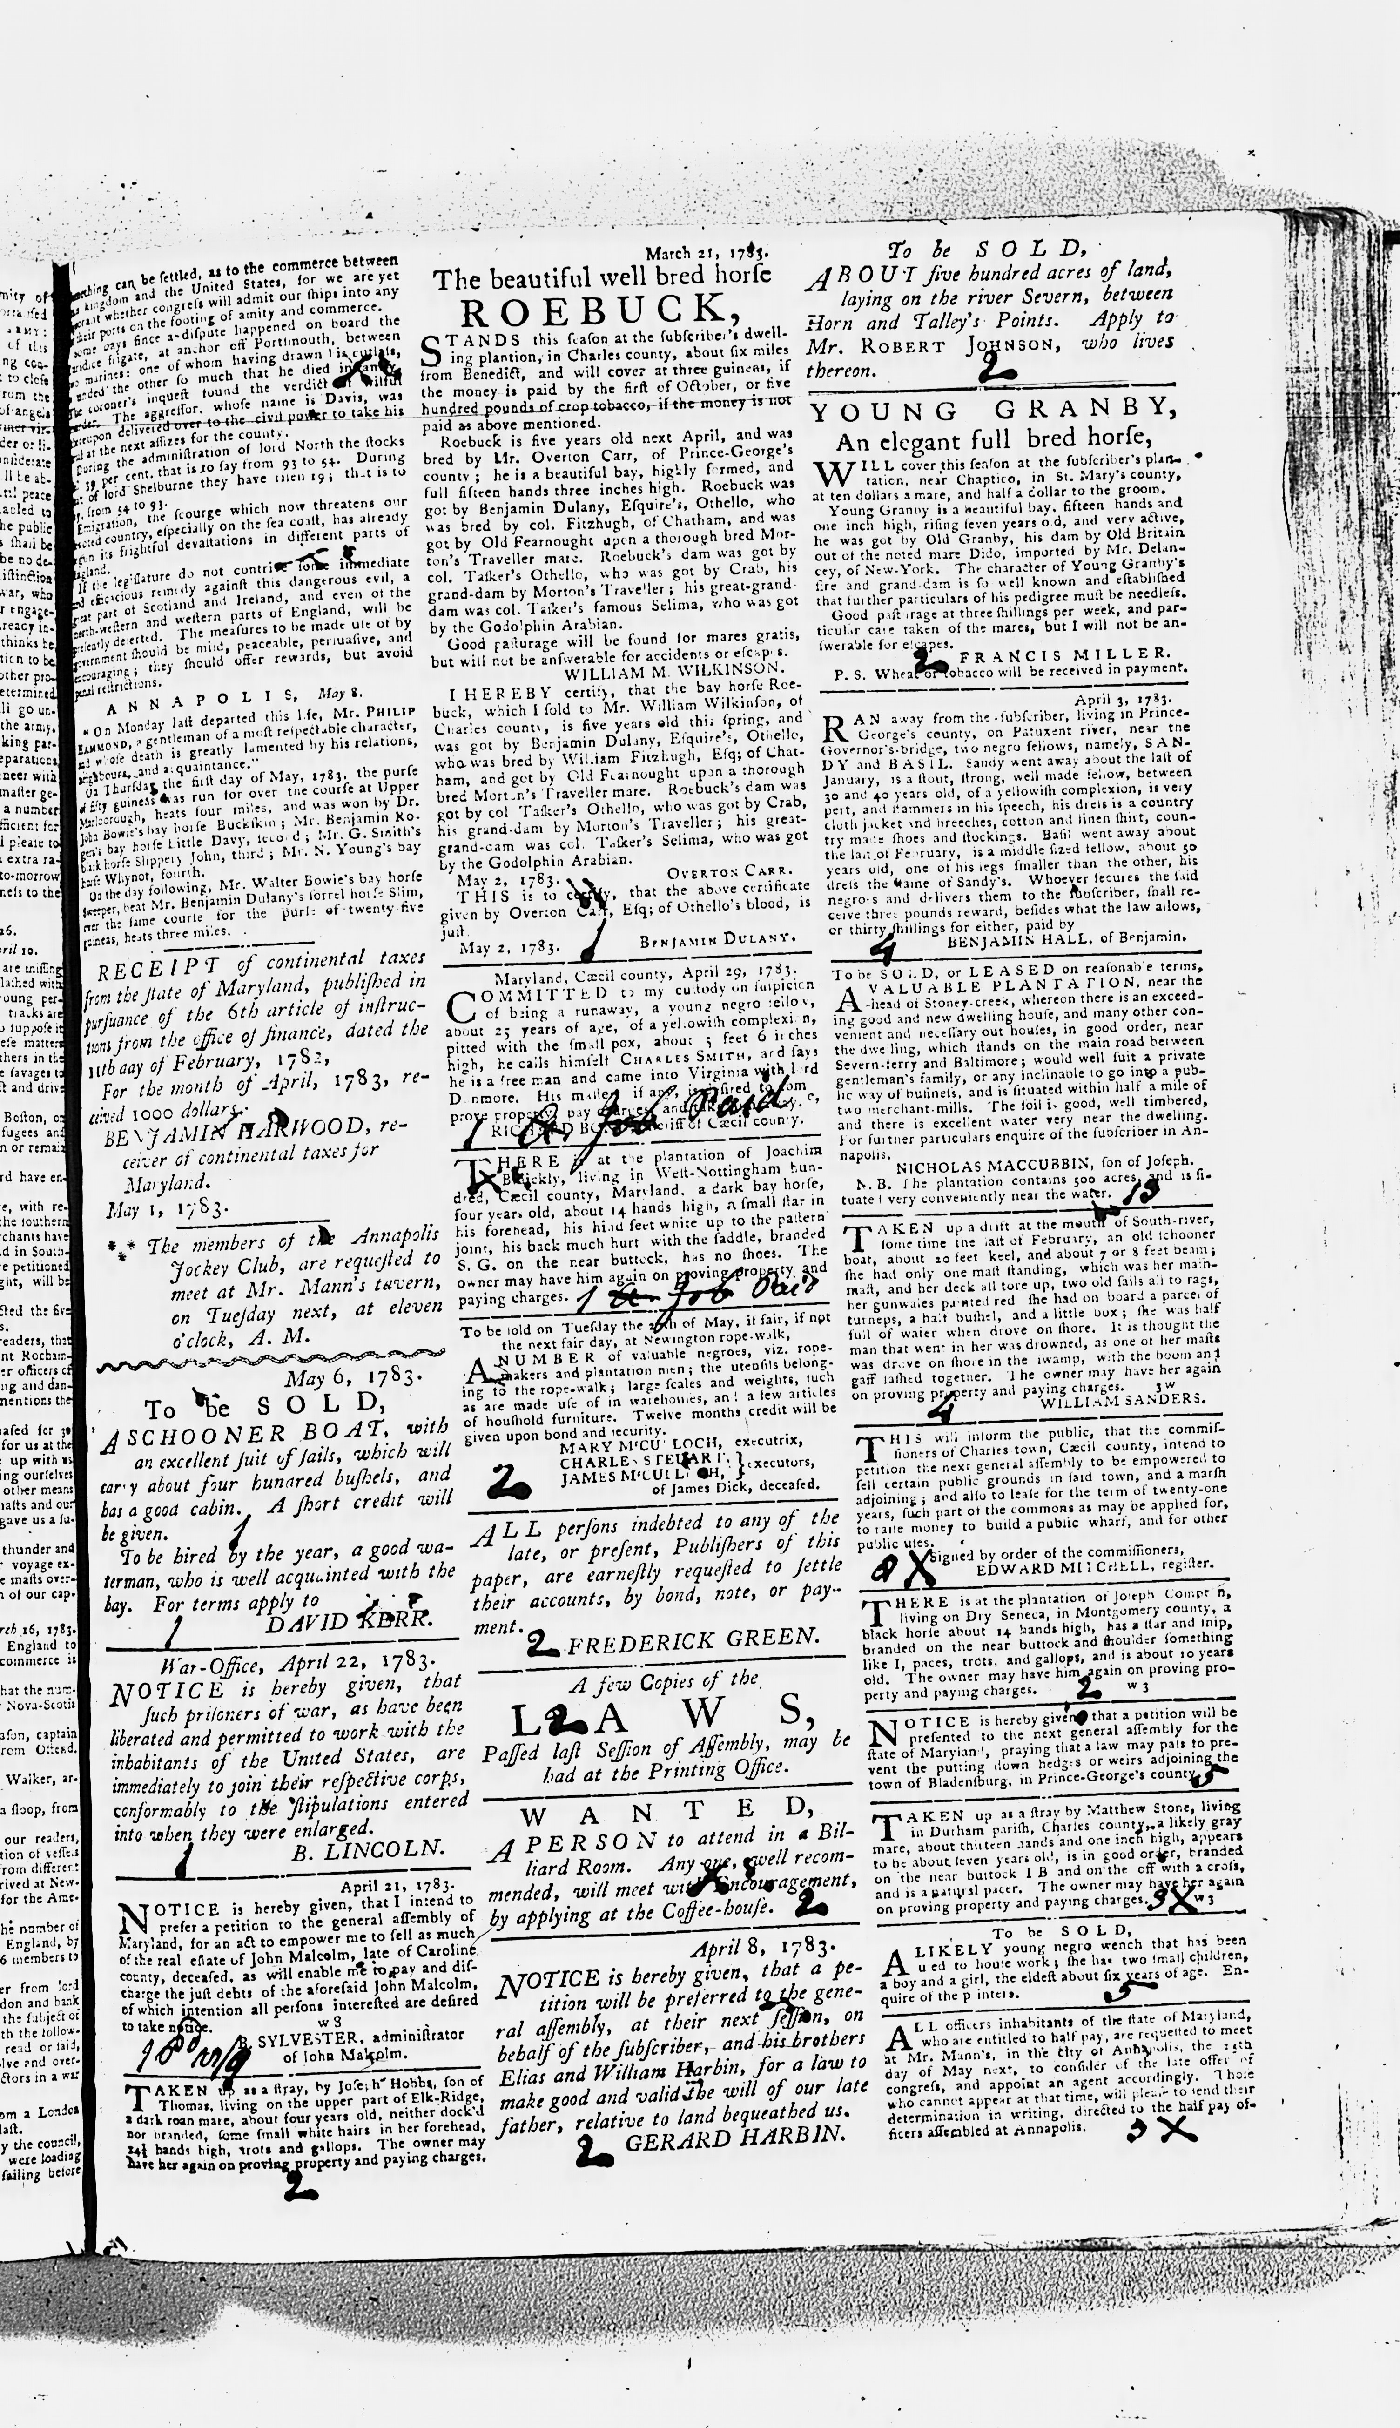 can be ſettled, as to the commerce between
kingdom and the United States, for we are yet
whether congreſs will admit our ſhips into any
their ports on the footing of amity and commerce.
Some days ſince a diſpute happened on board the
frigate, at anchor off Portſmouth, between
marines: one of whom having drawn his cutlaſs,
the other ſo much that he died
The coroner's inqueſt found the verdict wilful
The aggreſſor, whoſe name is Davis, was
delivered over to the civil power to take his
at the next aſſizes for the county.
During the adminiſtration of lord North the ſtocks
per cent. that is to ſay from 93 to 54. During
of lord Shelburne they have riſen 19; that is to
from 54 to 93.
Emigration, the ſcourge which now threatens our
country, eſpecially on the ſea coaſt, has already
its frightful devaſtations in different parts of
If the legiſlature do not contrive ſome immediate
efficacious remedy againſt this dangerous evil, a
great part of Scotland and Ireland, and even of the
north-weſtern and weſtern parts of England, will be
deſerted. The meaſures to be made uſe of by
government ſhould be mild, peaceable, perſuaſive, and
encouraging; they ſhould offer rewards, but avoid
penal reſtrictions.
ANNAPOLIS, May 8.
" On Monday laſt departed this life, Mr. PHILIP
HAMMOND, a gentleman of a moſt reſpectable character,
whoſe death is greatly lamented by his relations,
neighbours, and acquaintance."
On Thurſday the firſt day of May, 1783, the purſe
of fifty guineas was run for over the courſe at Upper
Marlborough, heats four miles, and was won by Dr.
John Bowie's bay horſe Buckſkin; Mr. Benjamin Ro-
gers's bay horſe Little Davy, ſecond; Mr. G. Smith's
horſe Slippery John, third; Mr. N. Young's bay
horſe Whynot, fourth.
On the day following, Mr. Walter Bowie's bay horſe
Sweeper, beat Mr. Benjamin Dulany's ſorrel horſe Slim,
over the ſame courſe for the purſe of twenty-five
guineas, heats three miles.
RECEIPT of continental taxes
from the ſtate of Maryland, publiſhed in
purſuance of the 6th article of inſtruc-
tions from the office of finance, dated the
11th day of February, 1782,
For the month of April, 1783, re-
ceived 1000 dollars.
BENJAMIN HARWOOD, re-
ceiver of continental taxes for
Maryland.
May 1, 1783.
*** The members of the Annapolis
Jockey Club, are requeſted to
meet at Mr. Mann's tavern,
on Tueſday next, at eleven
o'clock, A. M.
May 6, 1783.
To be SOLD,
A SCHOONER BOAT, with
an excellent ſuit of ſails, which will
carry about four hundred buſhels, and
has a good cabin. A ſhort credit will
be given.
1
To be hired by the year, a good wa-
terman, who is well acquainted with the
bay. For terms apply to
1 DAVID KERR.
War-Office, April 22, 1783.
NOTICE is hereby given, that
ſuch priſoners of war, as have been
liberated and permitted to work with the
inhabitants of the United States, are
immediately to join their reſpective corps,
conformably to the ſtipulations entered
into when they were enlarged.
1 B. LINCOLN.
April 21, 1783.
NOTICE is hereby given, that I intend to
prefer a petition to the general aſſembly of
Maryland, for an act to empower me to ſell as much
of the real eſtate of John Malcolm, late of Caroline
county, deceaſed, as will enable me to pay and diſ-
charge the juſt debts of the aforeſaid John Malcolm,
of which intention all perſons intereſted are deſired
to take notice. w 8
B. SYLVESTER, adminiſtrator
of John Malcolm.
TAKEN up as a ſtray, by Joſeph Hobbs, ſon of
Thomas, living on the upper part of Elk-Ridge,
a dark roan mare, about four years old, neither dock'd
nor branded, ſome ſmall white hairs in her forehead,
14½ hands high, trots and gallops. The owner may
have her again on proving property and paying charges.
2
March 21, 1783.
The beautiful well bred horſe
ROEBUCK,
STANDS this ſeaſon at the ſubſcriber's dwell-
ing plantion, in Charles county, about ſix miles
from Benedict, and will cover at three guineas, if
the money is paid by the firſt of October, or five
hundred pounds of crop tobacco, if the money is not
paid as above mentioned.
Roebuck is five years old next April, and was
bred by Mr. Overton Carr, of Prince-George's
county; he is a beautiful bay, highly formed, and
full fifteen hands three inches high. Roebuck was
got by Benjamin Dulany, Eſquire's, Othello, who
was bred by col. Fitzhugh, of Chatham, and was
got by Old Fearnought upon a thorough bred Mor-
ton's Traveller mare. Roebuck's dam was got by
col. Taſker's Othello, who was got by Crab, his
grand-dam by Morton's Traveller; his great-grand-
dam was col. Taſker's famous Selima, who was got
by the Godolphin Arabian.
Good paſturage will be found for mares gratis,
but will not be anſwerable for accidents or eſcapes.
WILLIAM M. WILKINSON.
I HEREBY certify, that the bay horſe Roe-
buck, which I ſold to Mr. William Wilkinſon, of
Charles county, is five years old this ſpring, and
was got by Benjamin Dulany, Eſquire's, Othello,
who was bred by William Fitzhugh, Eſq; of Chat-
ham, and got by Old Fearnought upon a thorough
bred Morton's Traveller mare. Roebuck's dam was
got by col Taſker's Othello, who was got by Crab,
his grand-dam by Morton's Traveller; his great-
grand-dam was col. Taſker's Selima, who was got
by the Godolphin Arabian.
May 2, 1783. OVERTON CARR.
THIS is to certify, that the above certificate
given by Overton Carr, Eſq; of Othello's blood, is
juſt.
May 2, 1783. 1 BENJAMIN DULANY.
Maryland, Cæcil county, April 29, 1783.
COMMITTED to my cuſtody on ſuſpicion
of being a runaway, a young negro fellow,
about 25 years of age, of a yellowiſh complexion,
pitted with the ſmall pox, about 5 feet 6 inches
high, he calls himſelf CHARLES SMITH, and ſays
he is a free man and came into Virginia with lord
Dunmore. His maſter, if any, is deſired to come,
prove property, pay charges, and
1 Job Paid
ſheriff of Cæcil county.
THERE is at the plantation of Joachim
living in Weſt-Nottingham hun-
dred, Cæcil county, Maryland, a dark bay horſe,
four years old, about 14 hands high, a ſmall ſtar in
his forehead, his hind feet white up to the paſtern
joint, his back much hurt with the ſaddle, branded
S. G. on the near buttock, has no ſhoes. The
owner may have him again on proving property and
paying charges. 1 Job Paid
To be ſold on Tueſday the of May, if fair, if not
the next fair day, at Newington rope-walk,
A NUMBER of valuable negroes, viz. rope-
makers and plantation men; the utenſils belong-
ing to the rope-walk; large ſcales and weights, ſuch
as are made uſe of in warehouſes, and a few articles
of houſhold furniture. Twelve months credit will be
given upon bond and ſecurity.
MARY M'CULLOCH, executrix,
CHARLES STEUART, } executors,
JAMES M'CULLOCH,
2 of James Dick, deceaſed.
ALL perſons indebted to any of the
late, or preſent, Publiſhers of this
paper, are earneſtly requeſted to ſettle
their accounts, by bond, note, or pay-
ment.
2 FREDERICK GREEN.
A few Copies of the
LAWS,
2
Paſſed laſt Seſſion of Aſſembly, may be
had at the Printing Office.
WANTED,
A PERSON to attend in a Bil-
liard Room. Any one, well recom-
mended, will meet with Encouragement,
by applying at the Coffee-houſe. 2
April 8, 1783.
NOTICE is hereby given, that a pe-
tition will be preferred to the gene-
ral aſſembly, at their next ſeſſion, on
behalf of the ſubſcriber, and his brothers
Elias and William Harbin, for a law to
make good and valid the will of our late
father, relative to land bequeathed us.
2 GERARD HARBIN.
To be SOLD,
ABOUT five hundred acres of land,
laying on the river Severn, between
Horn and Talley's Points. Apply to
Mr. ROBERT JOHNSON, who lives
thereon. 2
YOUNG GRANBY,
An elegant full bred horſe,
WILL cover this ſeaſon at the ſubſcriber's plan-
tation, near Chaptico, in St. Mary's county,
at ten dollars a mare, and half a dollar to the groom.
Young Granby is a beautiful bay, fifteen hands and
one inch high, riſing ſeven years old, and very active,
he was got by Old Granby, his dam by Old Britain
out of the noted mare Dido, imported by Mr. Delan-
cey, of New-York. The character of Young Granby's
ſire and grand-dam is ſo well known and eſtabliſhed
that further particulars of his pedigree muſt be needleſs.
Good paſturage at three ſhillings per week, and par-
ticular care taken of the mares, but I will not be an-
ſwerable for eſcapes.
2 FRANCIS MILLER.
P. S. Wheat or tobacco will be received in payment.
April 3, 1783.
RAN away from the ſubſcriber, living in Prince-
George's county, on Patuxent river, near the
Governor's-bridge, two negro fellows, namely, SAN-
DY and BASIL. Sandy went away about the laſt of
January, is a ſtout, ſtrong, well made fellow, between
30 and 40 years old, of a yellowiſh complexion, is very
pert, and ſtammers in his ſpeech, his dreſs is a country
cloth jacket and breeches, cotton and linen ſhirt, coun-
try made ſhoes and ſtockings. Baſil went away about
the laſt of February, is a middle ſized fellow, about 50
years old, one of his legs ſmaller than the other, his
dreſs the ſame of Sandy's. Whoever ſecures the ſaid
negroes and delivers them to the ſubſcriber, ſhall re-
ceive three pounds reward, beſides what the law allows,
or thirty ſhillings for either, paid by
4 BENJAMIN HALL, of Benjamin.
To be SOLD, or LEASED on reaſonable terms,
A VALUABLE PLANTATION, near the
head of Stoney-creek, whereon there is an exceed-
ing good and new dwelling houſe, and many other con-
venient and neceſſary out houſes, in good order, near
the dwelling, which ſtands on the main road between
Severn-ferry and Baltimore; would well ſuit a private
gentleman's family, or any inclinable to go into a pub-
lic way of buſineſs, and is ſituated within half a mile of
two merchant-mills. The ſoil is good, well timbered,
and there is excellent water very near the dwelling.
For further particulars enquire of the ſubſcriber in An-
napolis.
NICHOLAS MACCUBBIN, ſon of Joſeph.
N. B. The plantation contains 500 acres, and is ſi-
tuated very conveniently near the water. 13
TAKEN up a drift at the mouth of South-river,
ſome time the laſt of February, an old ſchooner
boat, about 20 feet keel, and about 7 or 8 feet beam;
ſhe had only one maſt ſtanding, which was her main-
maſt, and her deck all tore up, two old ſails all to rags,
her gunwales painted red ſhe had on board a parcel of
turneps, a half buſhel, and a little box; ſhe was half
full of water when drove on ſhore. It is thought the
man that went in her was drowned, as one of her maſts
was drove on ſhore in the ſwamp, with the boom and
gaff laſhed together. The owner may have her again
on proving property and paying charges. 3w
4 WILLIAM SANDERS.
THIS will inform the public, that the commiſ-
ſioners of Charles town, Cæcil county, intend to
petition the next general aſſembly to be empowered to
ſell certain public grounds in ſaid town, and a marſh
adjoining; and alſo to leaſe for the term of twenty-one
years, ſuch part of the commons as may be applied for,
to raiſe money to build a public wharf, and for other
public uſes.
Signed by order of the commiſſioners,
X EDWARD MITCHELL, regiſter.
THERE is at the plantation of Joſeph
living on Dry Seneca, in Montgomery county, a
black horſe about 14 hands high, has a ſtar and ſnip,
branded on the near buttock and ſhoulder ſomething
like I, paces, trots, and gallops, and is about 10 years
old. The owner may have him again on proving pro-
perty and paying charges. 2 w 3
NOTICE is hereby given, that a petition will be
preſented to the next general aſſembly for the
ſtate of Maryland, praying that a law may paſs to pre-
vent the putting down hedges or weirs adjoining the
town of Bladenſburg, in Prince-George's county. 5
TAKEN up as a ſtray by Matthew Stone, living
in Durham pariſh, Charles county, a likely gray
mare, about thirteen hands and one inch high, appears
to be about ſeven years old, is in good order, branded
on the near buttock I B and on the off with a croſs,
and is a natural pacer. The owner may have her again
on proving property and paying charges. 3 X w 3
To be SOLD,
A LIKELY young negro wench that has been
uſed to houſe work; ſhe has two ſmall children,
a boy and a girl, the eldeſt about ſix years of age. En-
quire of the printers. 5
ALL officers inhabitants of the ſtate of Maryland,
who are entitled to half pay, are requeſted to meet
at Mr. Mann's, in the city of Annapolis, the
day of May next, to conſider of the late offer of
congreſs, and appoint an agent accordingly. Thoſe
who cannot appear at that time, will pleaſe to ſend their
determination in writing, directed to the half pay of-
ficers aſſembled at Annapolis. 3 X